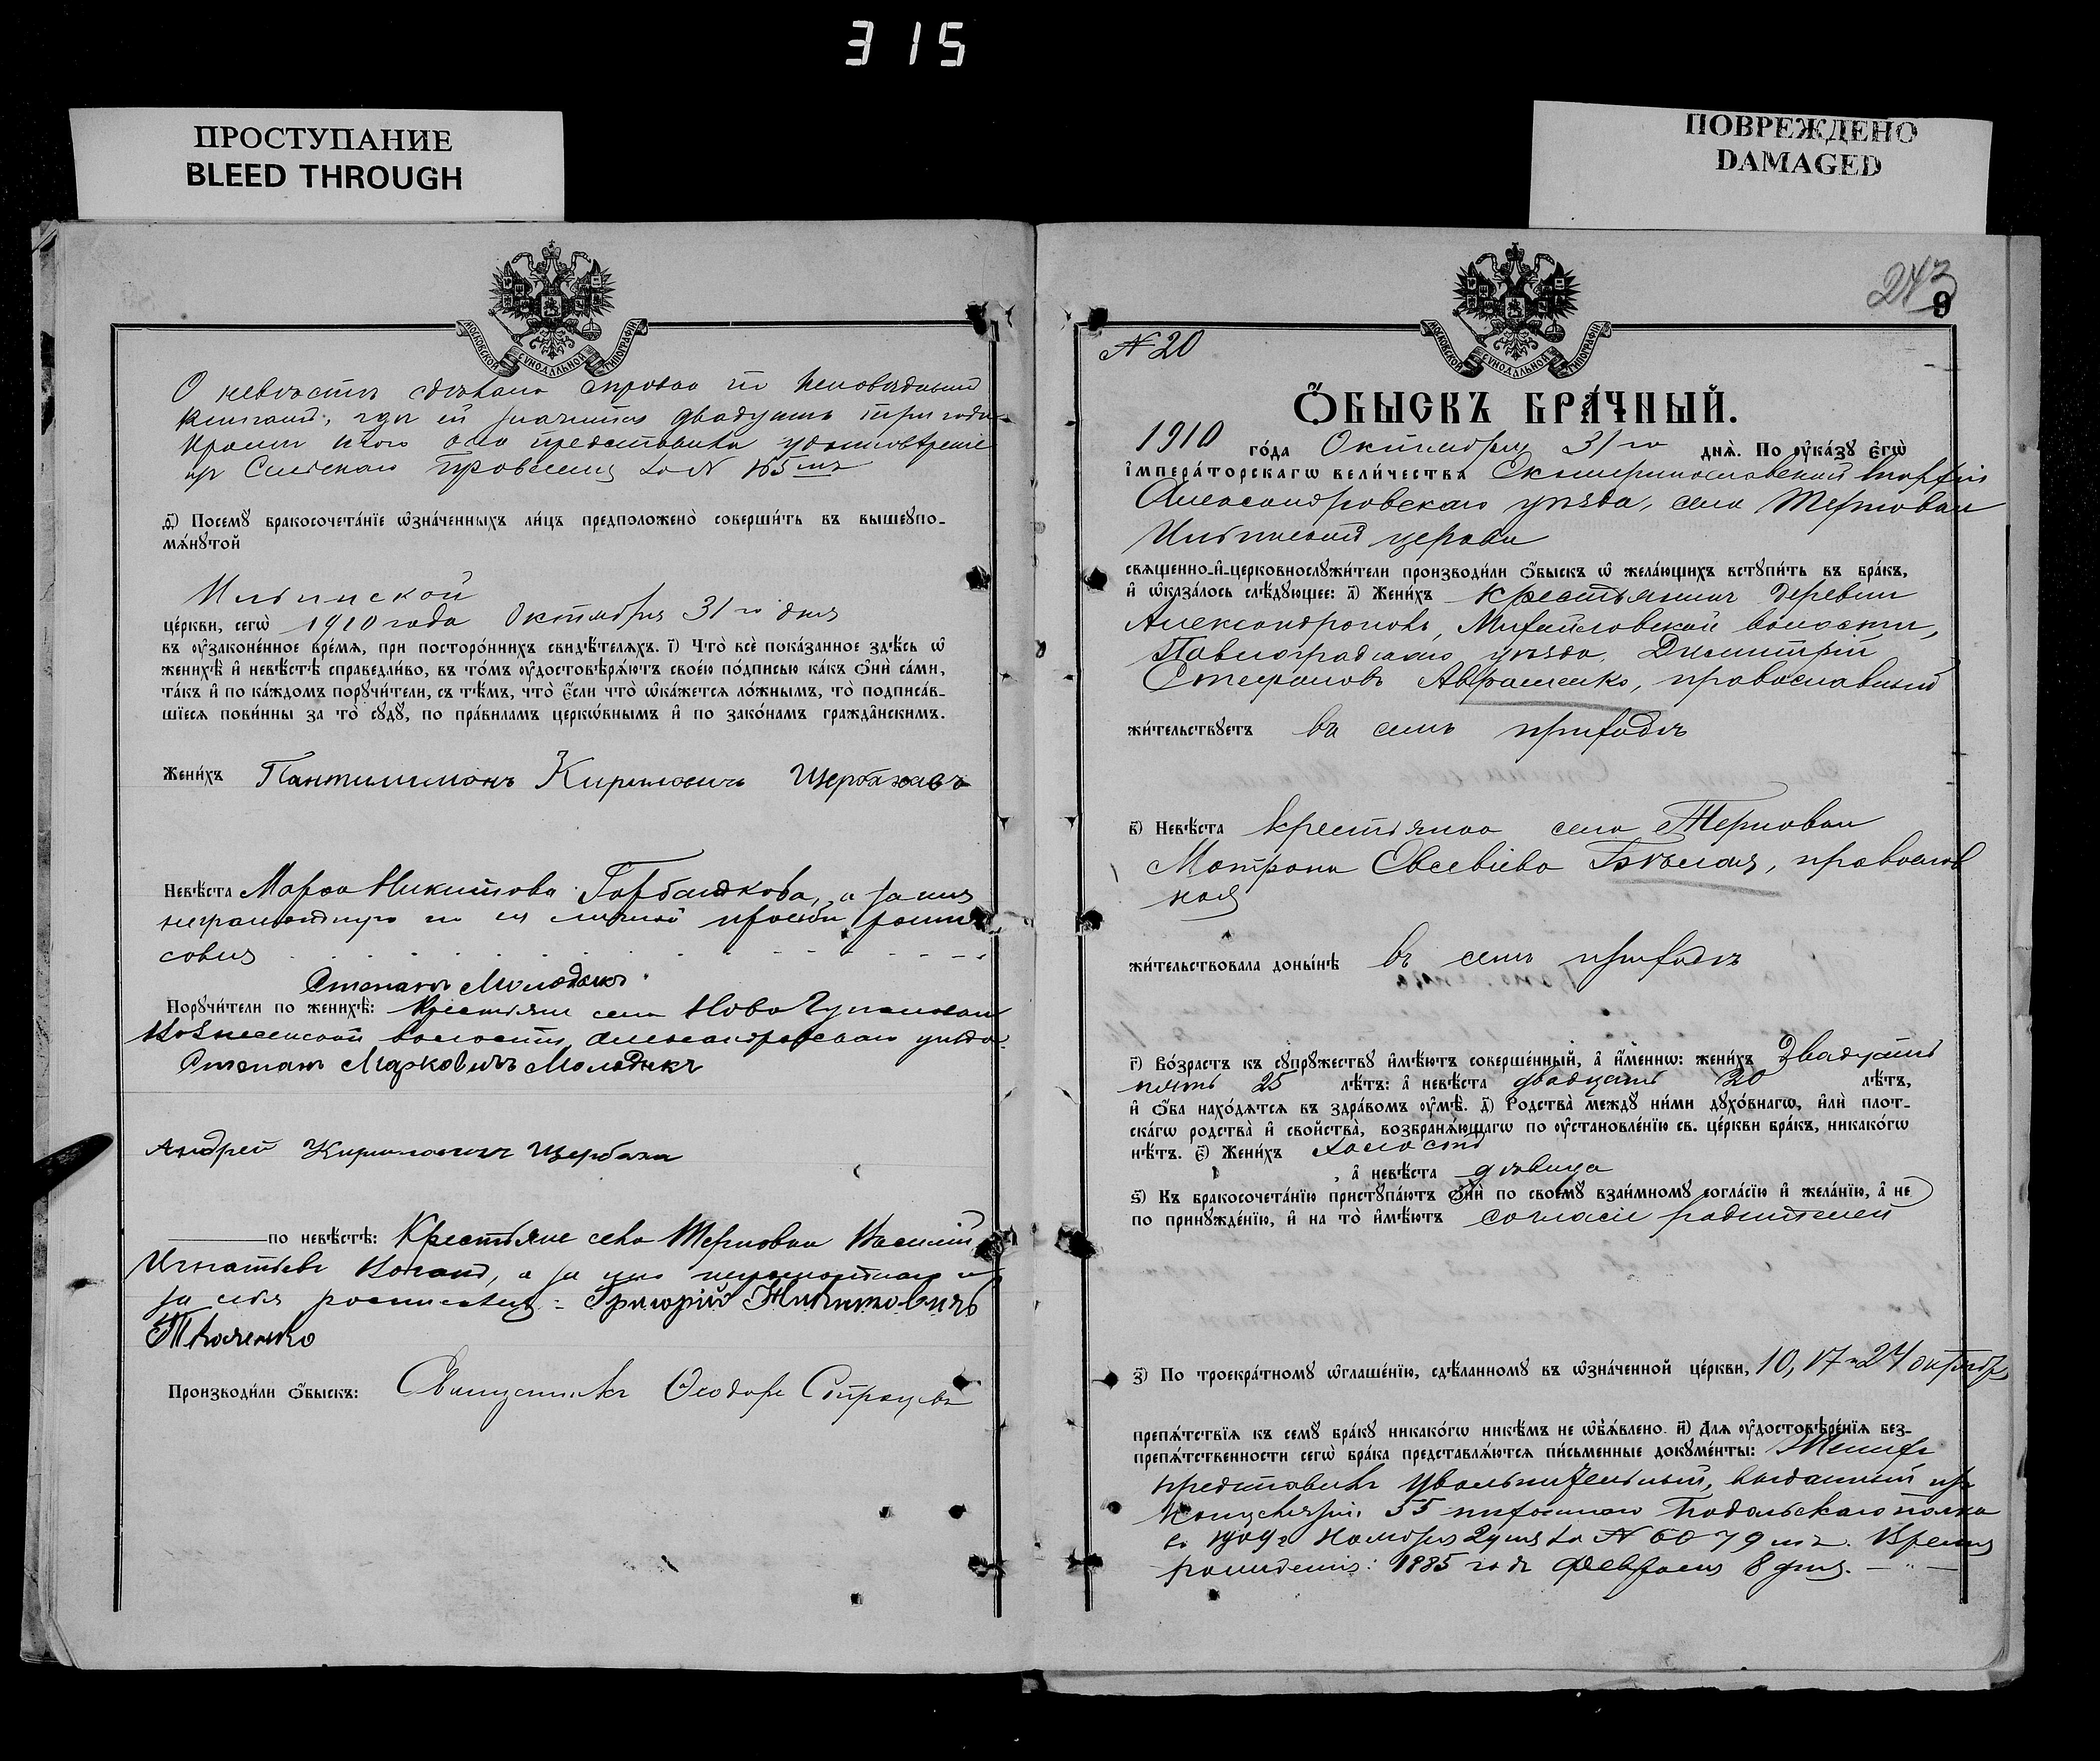 315
ПРОСТУПАНИЕ
BLEED THROUGH
ПОВРЕЖДЕНО
DAMAGED
МОСКОВСКОЙ СѴНОДАЛЬНОЙ ТИПОГРАФІИ
О невѣстѣ сдѣлана справка по исповѣднымъ
книгамъ, гдѣ ей значится двадцать три года
кромѣ того она представила удостовѣреніе
изъ Сельскаго Правленія за № 165мъ
д҃і) Посемꙋ бракосочета́нїе ѡ҆зна́ченныхъ ли́цъ предположено̀ соверши́ть въ вышеꙋпо-
мѧ́нꙋтой
Ильинской
це́ркви, сегѡ̀ 1910 года Октября 31го дня
въ ᲂу҆зако́ненное вре́мѧ, при посторо́ннихъ свидѣ́телѧхъ. і҃) Что̀ всѐ пока́занное здѣ́сь ѡ҆
женихѣ̀ и҆ невѣ́стѣ справедли́во, въ то́мъ ᲂу҆достовѣрѧ́ютъ свое́ю по́дписью ка́къ ѻ҆нѝ са́ми,
та́къ и҆ по ка́ждомъ порꙋчи́тели, съ тѣ́мъ, что̀ є҆́сли что̀ ѡ҆ка́жетсѧ ло́жнымъ, то̀ подписа́в-
шїесѧ пови́нны за то̀ сꙋдꙋ̀, по пра́виламъ церкѡ́внымъ и҆ по зако́намъ гражда̂нскимъ.
Жени́хъ Пантилимонъ Кириловичъ Щербаковъ
Невѣ́ста Марфа Никитова Горбашкова, а за нея
неграмотную по ея личной просьбѣ роспи
сался
Степанъ Молодыкъ
Порꙋчи́тели по женихѣ̀: Крестьяне села Ново Гупаловки
Вознесенской волости, Александровскаго уѣзда
Степанъ Марковичъ Молодыкъ
Андрей Кириловичъ Щербаки
по невѣ́стѣ: Крестьяне села Терновки Василий
Игнатьевъ, а за него неграмотнаго и
за себя росписался: Григорій Никитовичъ
Ткаченко
Производи́ли ѻ҆́быскъ: Священникъ Ѳеодоръ
243
9
МОСКОВСКОЙ СѴНОДАЛЬНОЙ ТИПОГРАФІИ
№ 20
Ѻ҆́БЫСКЪ БРА́ЧНЫЙ.
1910 го́да Октября 31го днѧ̀. По ᲂу҆ка́зꙋ є҆гѡ̀
і҆мпера́торскагѡ вели́чества Екатеринославской Епархіи
Александровскаго уѣзда, села Терновки
Ильинской церкви
свѧщенно-и҆-церковнослꙋжи́тели производи́ли ѻ҆́быскъ ѡ҆ жела́ющихъ встꙋпи́ть въ бра́къ,
и҆ ѡ҆каза́лось слѣ́дꙋющее: а҃) Жени́хъ крестьянинъ деревни
Александрополь, Михайловской волости,
Павлоградскаго уѣзда, Димитрій
Стефановъ Авраменко, православный
жи́тельствꙋетъ въ семъ приходѣ
в҃) Невѣ́ста крестьянка села Терновки
Матрона Евсевіева Бѣлая, православ
ная
жи́тельствовала доны́нѣ въ семъ приходѣ
г҃) Во́зрастъ къ сꙋпрꙋ́жествꙋ и҆мѣ́ютъ соверше́нный, а҆ и҆́меннѡ: жени́хъ двадцать
пять 25 лѣ́тъ: а҆ невѣ́ста двадцать 20 лѣ́тъ,
и҆ ѻ҆́ба нахо́дѧтсѧ въ здра́вомъ ᲂу҆мѣ̀. д҃) Родства̀ междꙋ̀ ни́ми дꙋхо́внагѡ, и҆лѝ плот-
ска́гѡ родства̀ и҆ сво́йства, возбранѧ́ющагѡ по ᲂу҆становле́нїю св. це́ркви бра́къ, никако́гѡ
нѣ́тъ. є҃) Жени́хъ холостъ
, а҆ невѣ́ста дѣвица
ѕ҃) Къ бракосочета́нїю пристꙋпа́ютъ ѻ҆нѝ по своемꙋ̀ взаи́мномꙋ согла́сїю и҆ жела́нїю, а҆ не
по принꙋжде́нїю, и҆ на то̀ и҆мѣ́ютъ согласіе родителей
з҃) По троекра́тномꙋ ѡ҆глаше́нїю, сдѣ́ланномꙋ въ ѡ҆зна́ченной це́ркви, 10, 17 и 24 октября
препѧ́тствїѧ къ семꙋ̀ бра́кꙋ никако́гѡ никѣ́мъ не ѡ҆б̾ѧ́влено. и҃) Длѧ ᲂу҆достовѣре́нїѧ без-
препѧ́тственности сегѡ̀ бра́ка представлѧ́ютсѧ пи́сьменные докꙋме́нты: Женихъ
представилъ увольнительный, выданный изъ
канцеляріи 55 пѣхотнаго Подольскаго полка
въ 1909г Ноября 24 за № 6079мъ. Время
рожденія: 1885 года Февраля 8 дня.